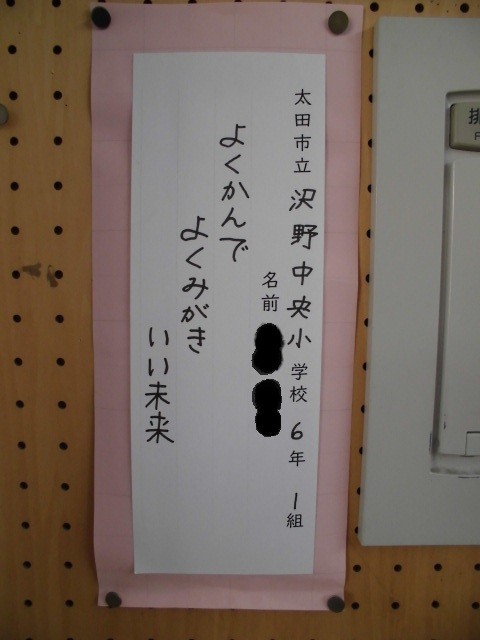 太田市立 沢野中央小 学校 6年 1組
名前
よくかんで
よくみがき
いい未来
排